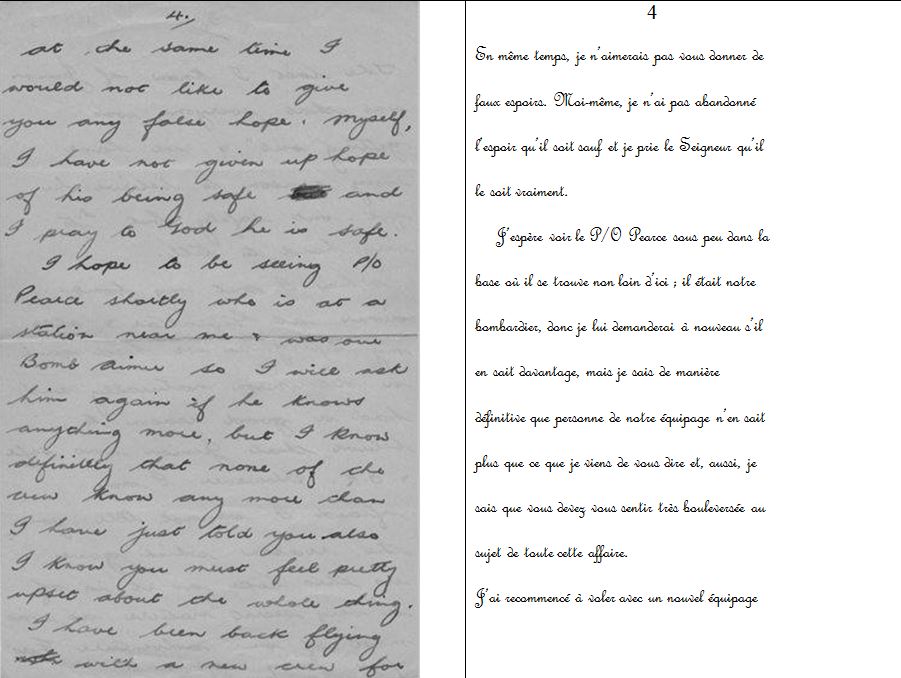 4.
at the same time I
would not like to give
you any false hope. Myself,
I have not given up hope
of his being safe and
I pray to God he is safe.
I hope to be seeing P/O
Pearce shortly who is at a
station near me & was our
Bomb aimer so I will ask
him again if he knows
anything more, but I know
definitely that none of the
crew know any more than
I have just told you also
I know you must feel pretty
upset about the whole thing.
I have been back flying
with a new crew for
4
En même temps, je n'aimerais pas vous donner de
faux espoirs. Moi-même, je n'ai pas abandonné
l'espoir qu'il soit sauf et je prie le Seigneur qu'il
le soit vraiment.
J'espère voir le P/O Pearce sous peu dans la
base où il se trouve non loin d'ici ; il était notre
bombardier, donc je lui demanderai à nouveau s'il
en sait davantage, mais je sais de manière
définitive que personne de notre équipage n'en sait
plus que ce que je viens de vous dire et, aussi, je
sais que vous devez vous sentir très bouleversée au
sujet de toute cette affaire.
J'ai recommencé à voler avec un nouvel équipage